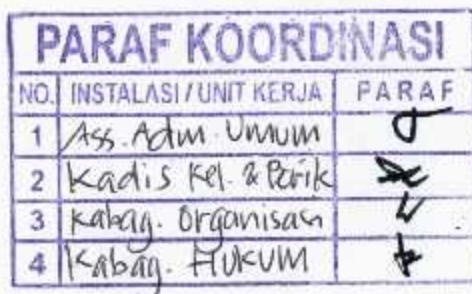 PARAF KOORDINASI
NO. INSTALASI / UNIT KERJA PARAF
1 Ass. Adm. Umum
2 Kadis Kel. & Perik
3 Kabag. Organisasi
4 Kabag. HUKUM